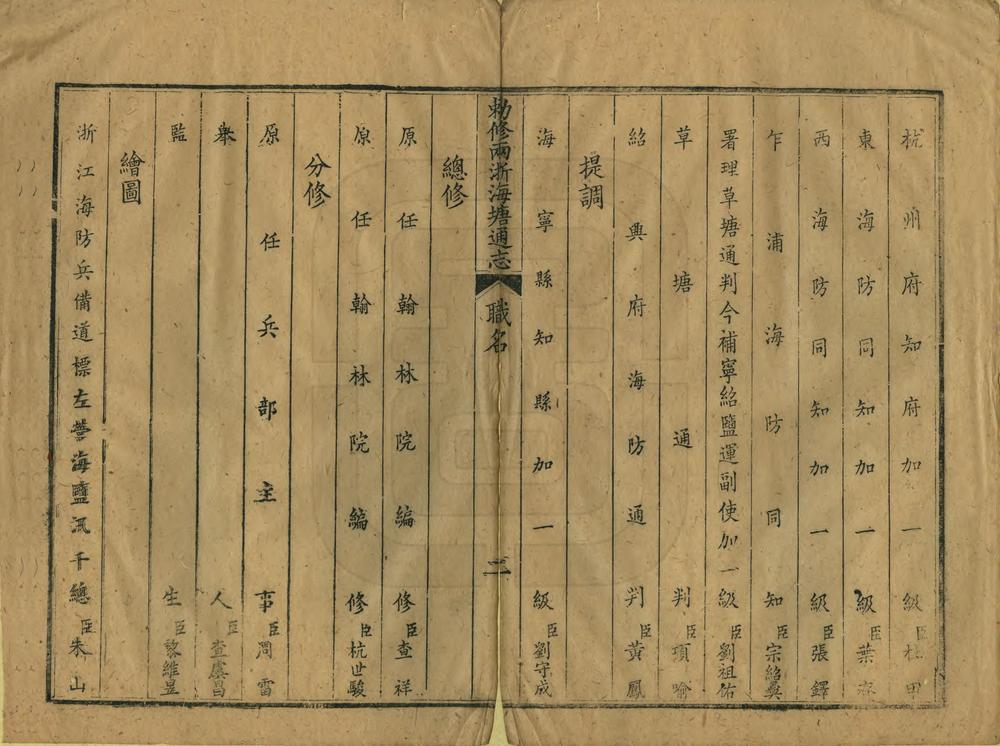 杭州府知府加一級臣杜甲
東海防同知加一級臣葉
西海防同知加一級臣張鐸
乍浦海防同知臣宗紹彝
署理草塘通判今補寧紹鹽運副使加一級臣劉祖佑
草塘通判臣項喻
紹興府海防通判臣黃鳳
提調
海寧縣知縣加一級臣劉守成
勅修兩浙海塘通志
職名
二
總修
原任翰林院編修臣查祥
原任翰林院編修臣杭世駿
分修
原任兵部主事臣周雷
舉人臣查虞昌
監生臣黎維昱
繪圖
浙江海防兵備道標左營海鹽汛千總臣朱山